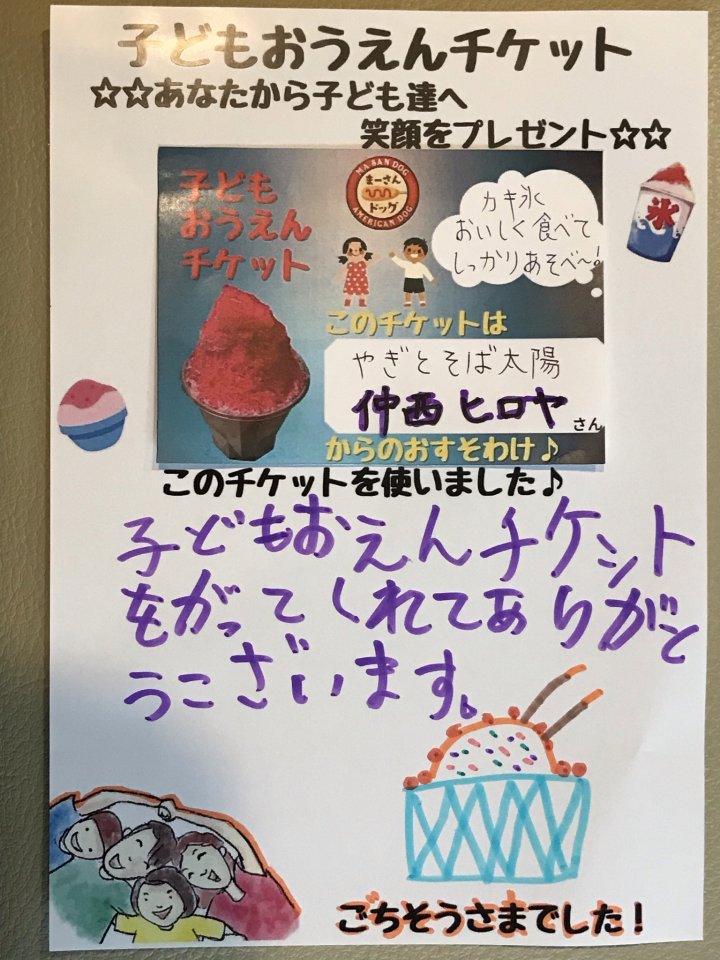 子どもおうえんチケット
☆☆あなたから子ども達へ
笑顔をプレゼント☆☆
子ども
おうえん
チケット
MA SAN DOG
まーさん
ドッグ
AMERICAN DOG
カキ氷
おいしく食べて
しっかりあそべ〜!
氷
このチケットは
やぎとそば太陽
仲西 ヒロヤ さん
からのおすそわけ♪
このチケットを使いました♪
子どもおえんチケット
をがってくれてありがと
うこざいます。
ごちそうさまでした!